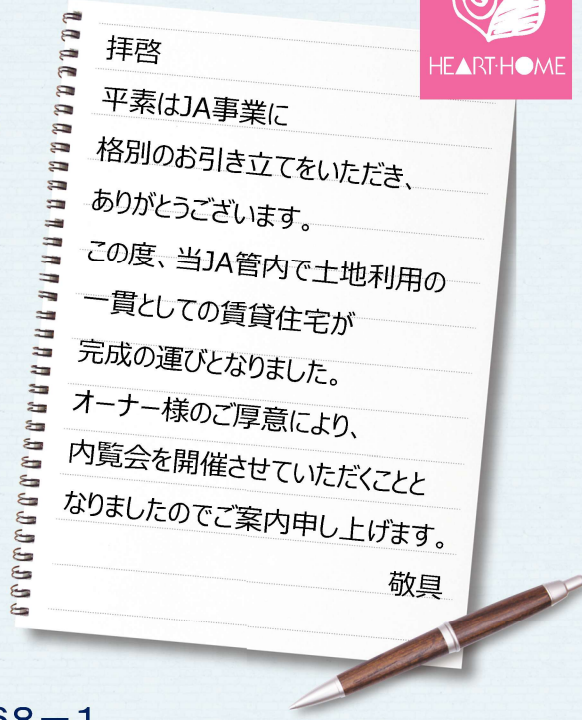 HEART·HOME
拝啓
平素はJA事業に
格別のお引き立てをいただき、
ありがとうございます。
この度、当JA管内で土地利用の
一貫としての賃貸住宅が
完成の運びとなりました。
オーナー様のご厚意により、
内覧会を開催させていただくことと
なりましたのでご案内申し上げます。
敬具
68－1